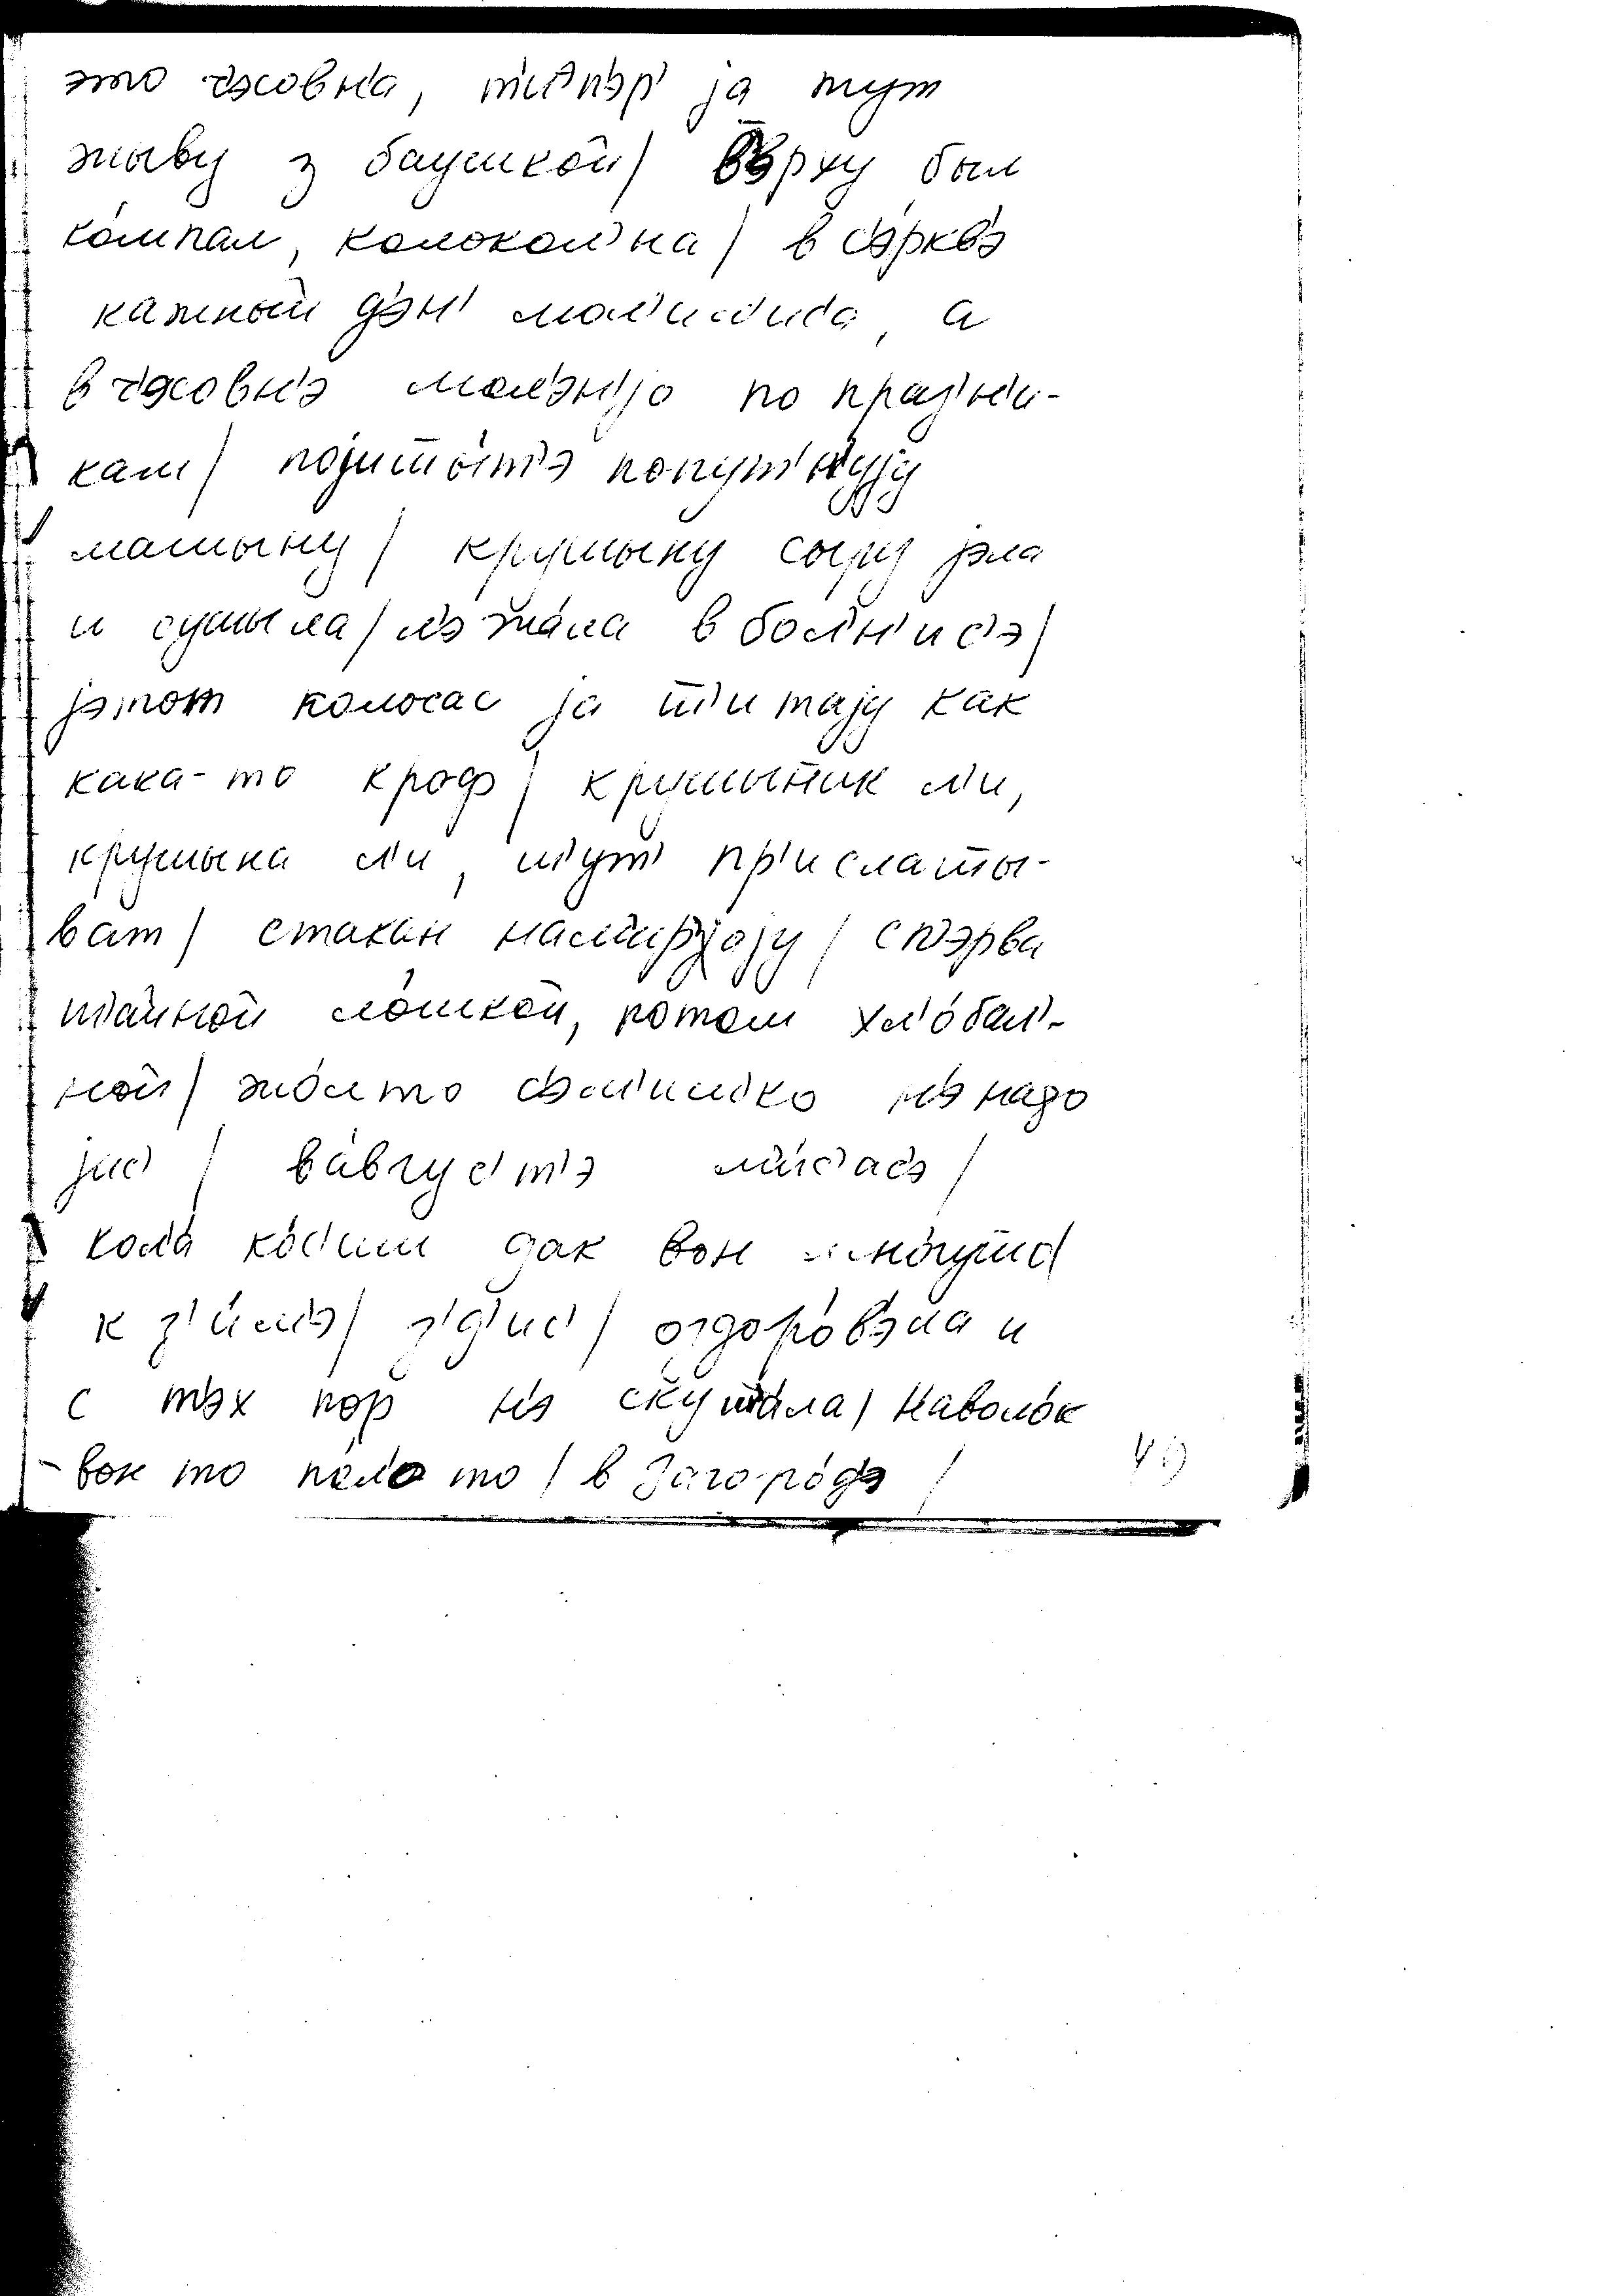 это ч'асовн'а, т'иэп'эр' ја тут
жыву з баушкой/ в'эрху был
ко́мпал, колокол'на/ в с'э́ркв'э
кажный д'эн' мол'ил'ис'а, а
в ч'асовн'э мол'э́н'јо по праз'н'и-
кам/ појишшы́т'э попут'н'ују
машыну/ крушыну сыру јэла
и сушыла/ л'эжа́ла в бол'н'ис'э/
јэтот колосас ја ш'ш'итају как
кака-то кроф/ крушын'ик л'и,
крушына л'и, ш'ут' пр'ислашшы-
ват/ стакан нам'ир'јају/ сп'эрва
ш'айной ло́шкой, потом хл'о́бал'-
ной/ жо́лто с'эм'иш'ко н'э надо
јис'/ в а́вгус'т'э м'и́с'ас'э/
кол'а́ ко́с'им дак вон
к з'им'э́/ з'д'ис'/ оздоро́в'эла и
с т'эх пор н'э скуш'а́ла/ Наволо́к
вон то пол'о то/ в Загоро́д'э/
49